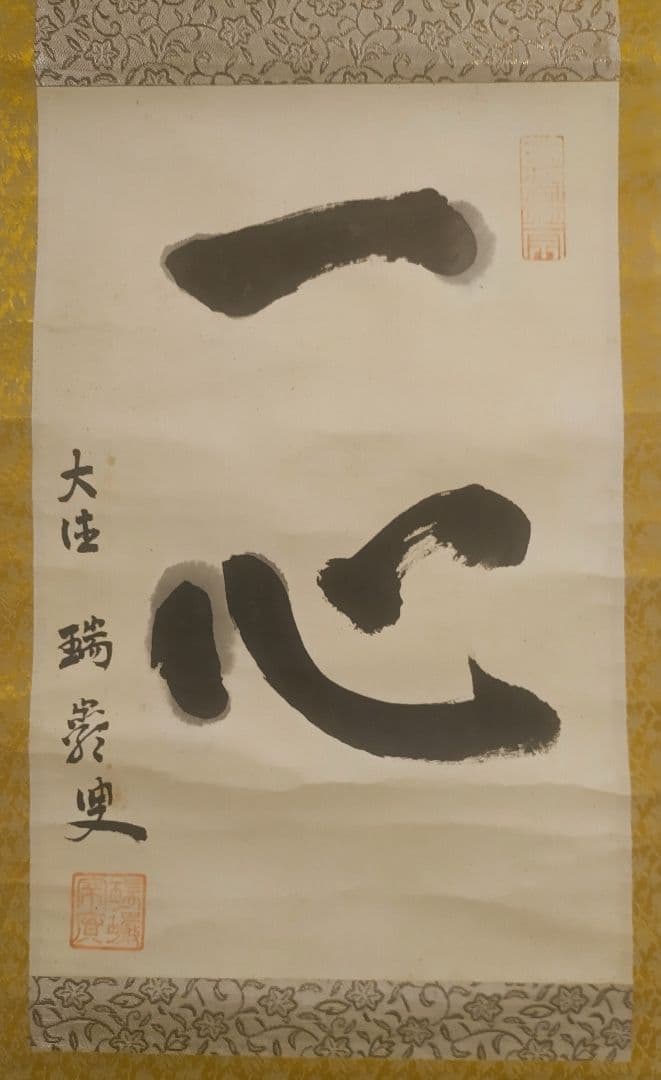 一心
大徳 瑞巌叟